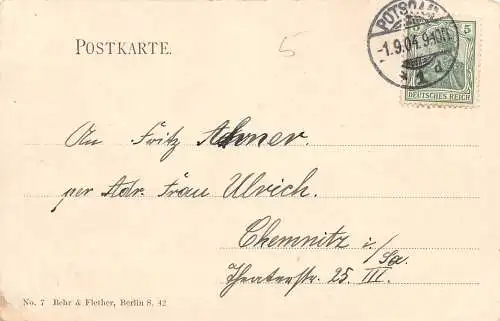 POTSDAM
-1.9.04.9-10N.
1 d
5
DEUTSCHES REICH
POSTKARTE.
5
An Fritz Ahner.
per Adr. Frau Ulrich.
Chemnitz i/Sa.
Theaterstr. 25. III.
No. 7 Behr & Flether, Berlin S. 42